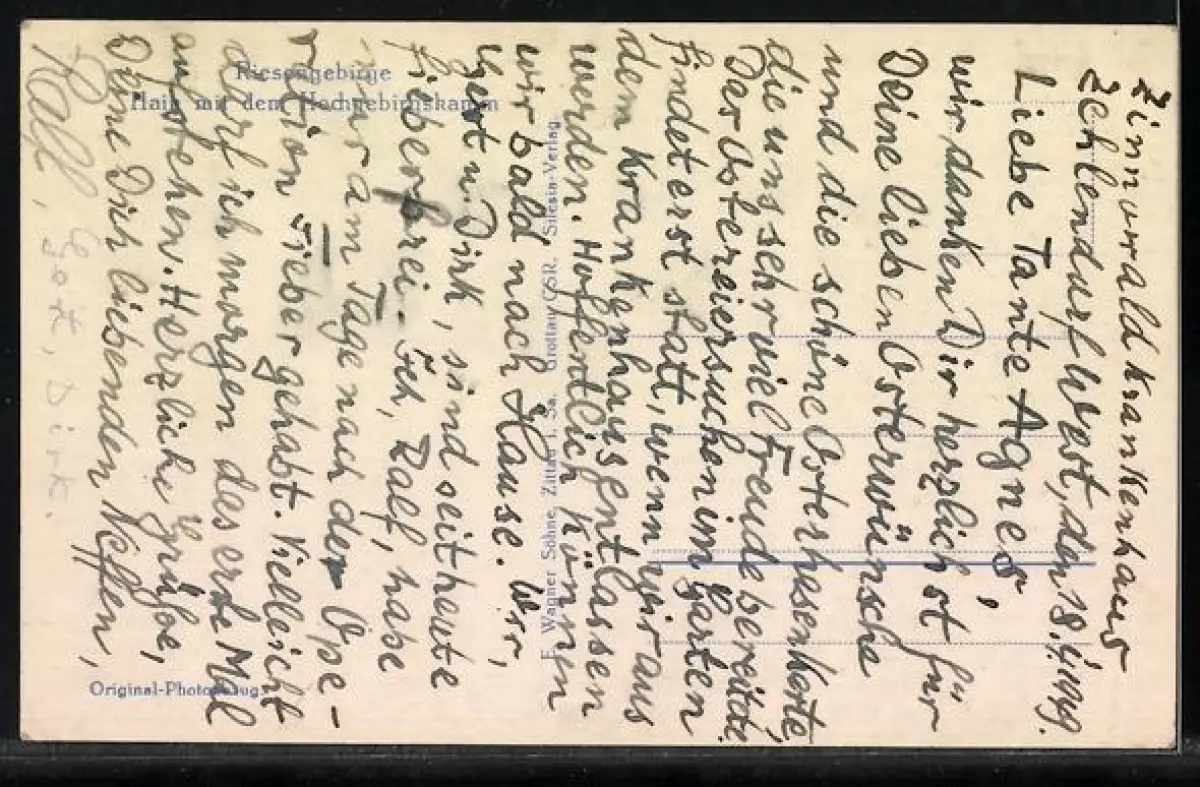 Zinnwaldkrankenhaus
Zehlendorf West, den 18.4.1949.
Liebe Tante Agnes,
wir danken Dir herzlichst für
Deine lieben Osterwünsche
und die schöne Osterhasenkarte,
die uns sehr viel Freude bereitete.
Das Ostereiersuchen im Garten
findet erst statt, wenn wir aus
dem Krankenhaus entlassen
werden. Hoffentlich können
wir bald nach Hause. Wir,
Gert u. Dirk, sind seit heute
fieberfrei. Ich, Ralf, habe
nur am Tage nach der Ope-
ration Fieber gehabt. Vielleicht
darf ich morgen das erste Mal
aufstehen. Herzliche Grüße,
Deine Dich liebenden Neffen,
Ralf, Gert, Dirk.
Riesengebirge
Hain mit dem Hochgebirgskamm
E. Wagner Söhne, Zittau i. Sa. Grottau ČSR. Silesia-Verlag.
Original-Photo